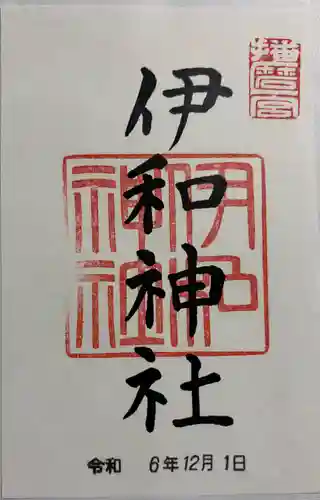 播磨一宮
伊和神社
伊和神社
令和 6年12月1日